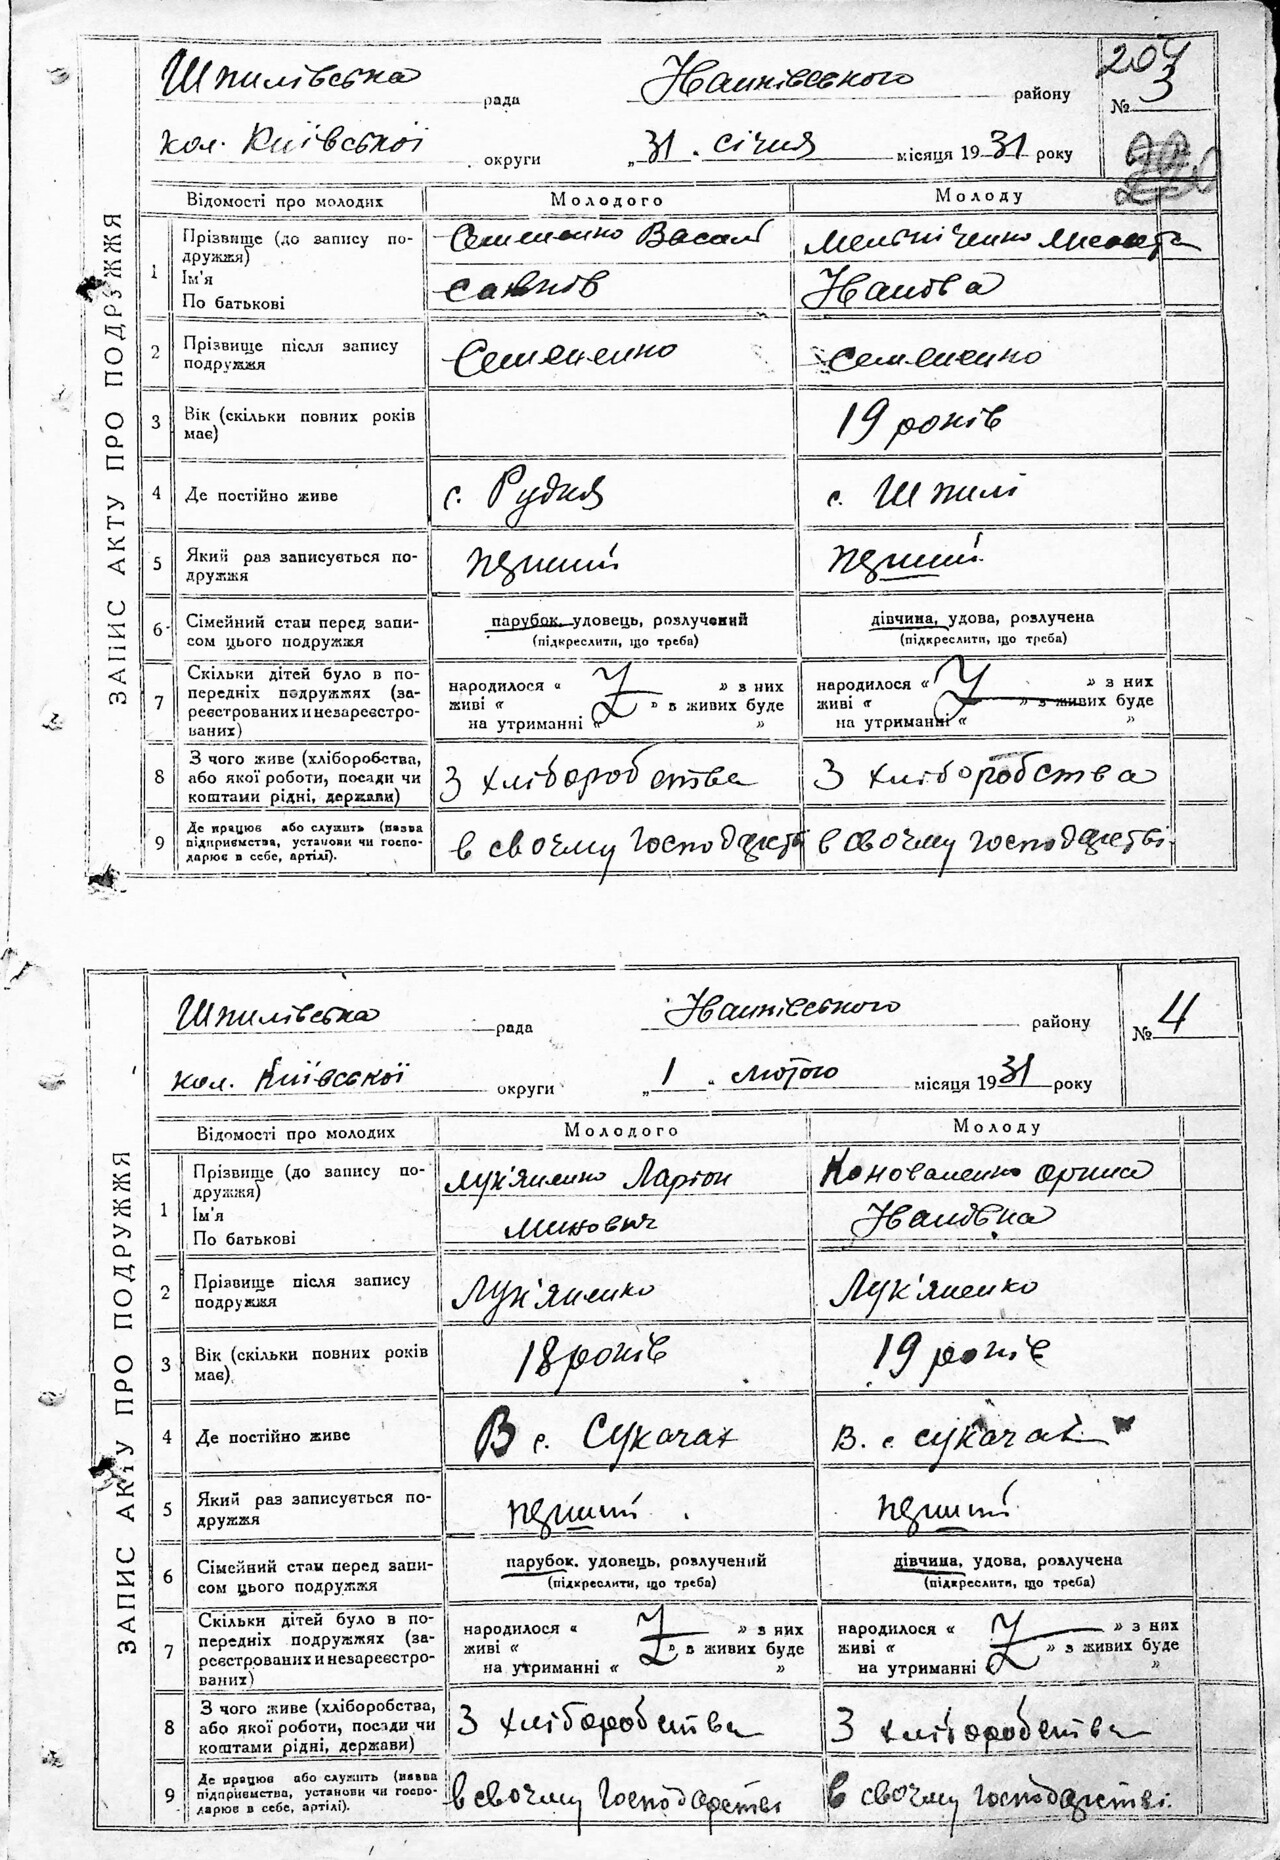 ЗАПИС АКТУ ПРО ПОДРУЖЖЯ
Шпилівська рада Іванківського району
204
№ 3
кол. Київської округи „31 . січня місяця 1931 року
Відомості про молодих Молодого Молоду
1 Прізвище (до запису по-
дружжя)
Ім'я
По батькові
Семененко Васил
Мельніченко
Іванова
2 Прізвище після запису
подружжя
Семененко
Семененко
3 Вік (скільки повних років
має)
19 років
4 Де постійно живе
с. Рудня
с. Шпилі
5 Який раз записується по-
дружжя
перший
перший
6 Сімейний стан перед запи-
сом цього подружжя
парубок, удовець, розлучений
(підкреслити, що треба)
дівчина, удова, розлучена
(підкреслити, що треба)
7 Скільки дітей було в по-
передніх подружжях (за-
реєстрованих и незареєстро-
ваних)
народилося « » з них
живі « » в живих буде
на утриманні « »
народилося « » з них
живі « » з живих буде
на утриманні « »
8 З чого живе (хліборобства,
або якої роботи, посади чи
коштами рідні, держави)
З хліборобства
З хліборобства
9 Де працює або служить (назва
підприємства, установи чи госпо-
дарює в себе, артілі).
в своєму господарстві
в своєму господарстві.
ЗАПИС АКТУ ПРО ПОДРУЖЖЯ
Шпилівська рада Іванківського району
№ 4
кол. Київської округи „1 . лютого місяця 1931 року
Відомості про молодих Молодого Молоду
1 Прізвище (до запису по-
дружжя)
Ім'я
По батькові
Лук'яненко Ларіон
Минович
Коноваленко Орина
Іванівна
2 Прізвище після запису
подружжя
Лук'яненко
Лук'яненко
3 Вік (скільки повних років
має)
18 років
19 років
4 Де постійно живе
В с. Сукачах
В. с. Сукачах
5 Який раз записується по-
дружжя
перший
перший
6 Сімейний стан перед запи-
сом цього подружжя
парубок, удовець, розлучений
(підкреслити, що треба)
дівчина, удова, розлучена
(підкреслити, що треба)
7 Скільки дітей було в по-
передніх подружжях (за-
реєстрованих и незареєстро-
ваних)
народилося « » з них
живі « » в живих буде
на утриманні « »
народилося « » з них
живі « » з живих буде
на утриманні « »
8 З чого живе (хліборобства,
або якої роботи, посади чи
коштами рідні, держави)
З хліборобства
З хліборобства
9 Де працює або служить (назва
підприємства, установи чи госпо-
дарює в себе, артілі).
в своєму господарстві
в своєму господарстві.